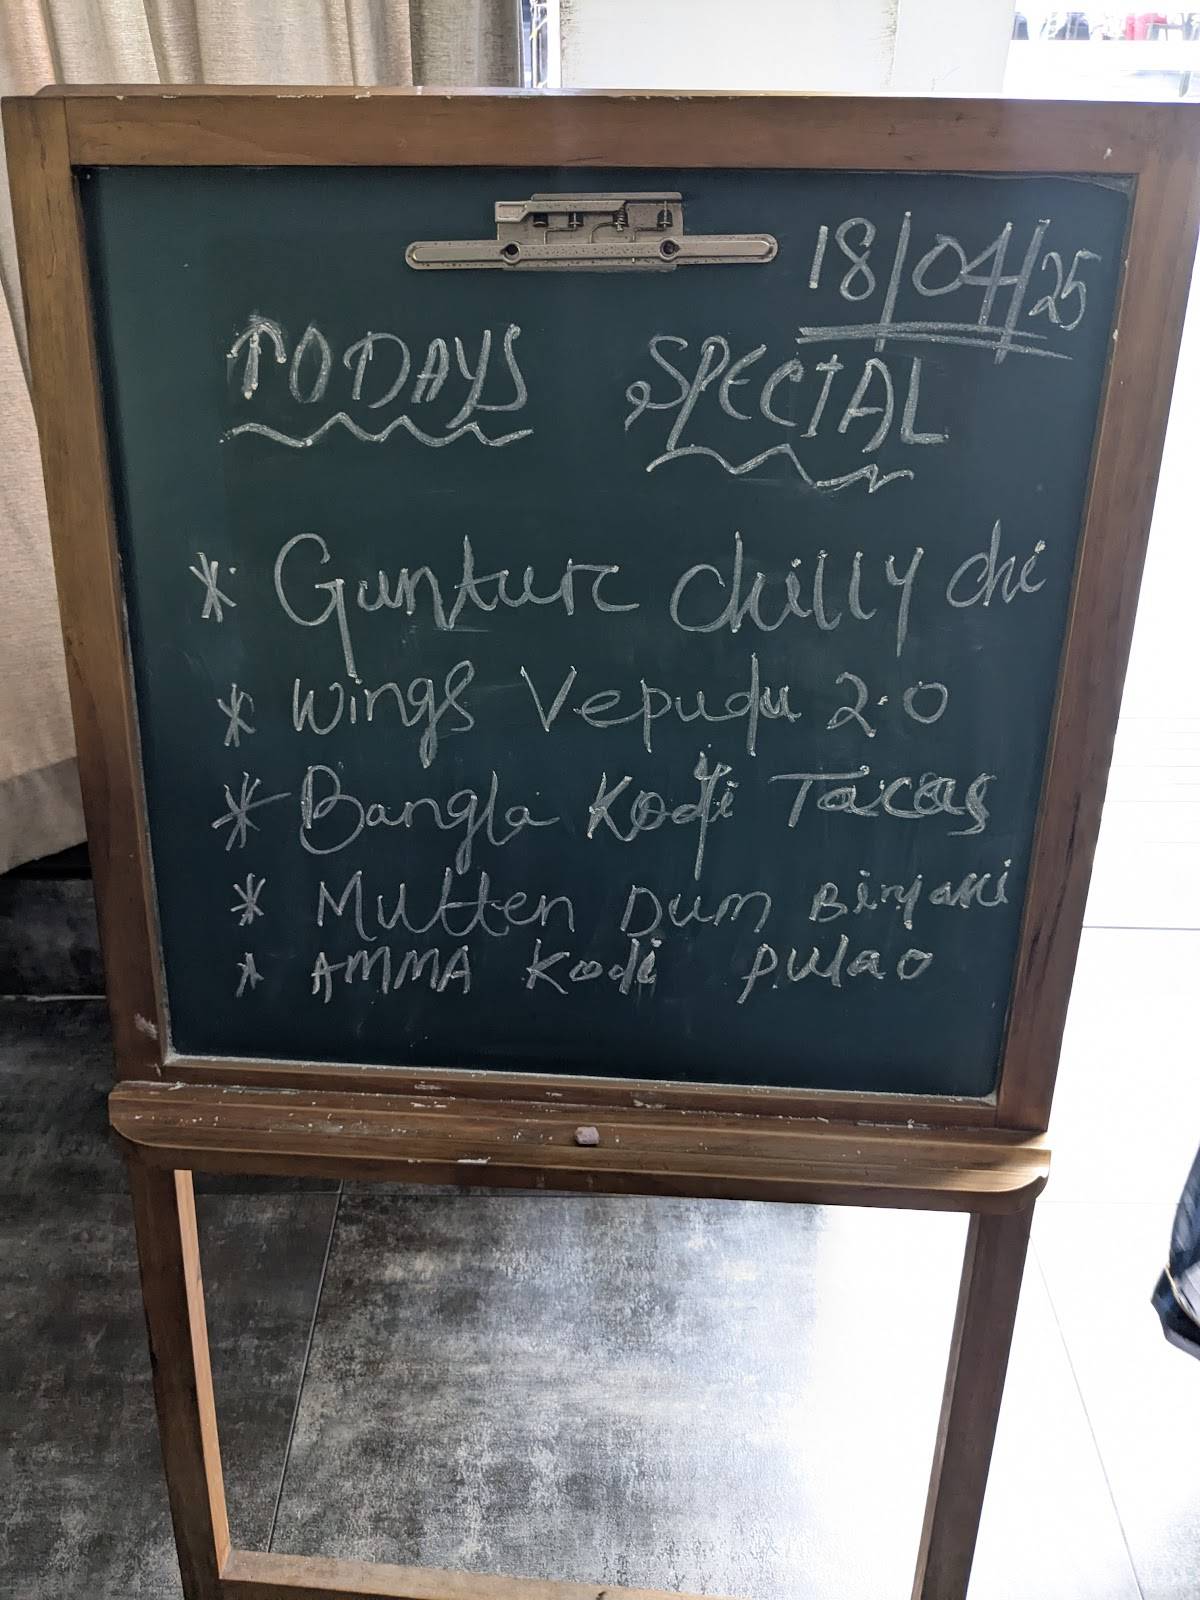 18/04/25
TODAYS SPECIAL
* Guntur chilly chi
* Wings Vepudu 2.0
* Bangla Kodi Tacos
* Mutten Dum Biryani
* AMMA Kodi pulao